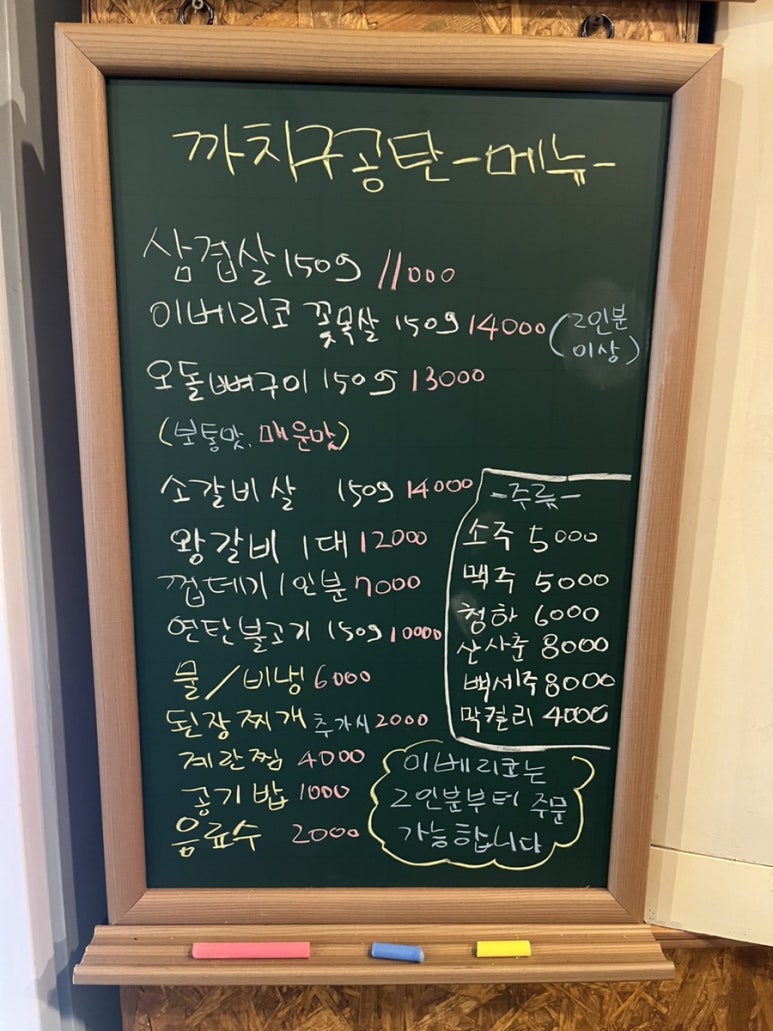 까치구공탄 -메뉴-
삼겹살 150g 11000
이베리코 꽃목살 150g 14000 (2인분
이상)
오돌뼈구이 150g 13000
(보통맛. 매운맛)
소갈비살 150g 14000
왕갈비 1대 12000
껍데기 1인분 7000
연탄불고기 150g 10000
물/비냉 6000
된장찌개 추가시 2000
계란찜 4000
공기밥 1000
음료수 2000
-주류-
소주 5000
맥주 5000
청하 6000
산사춘 8000
백세주 8000
막컬리 4000
이베리코는
2인분부터 주문
가능합니다